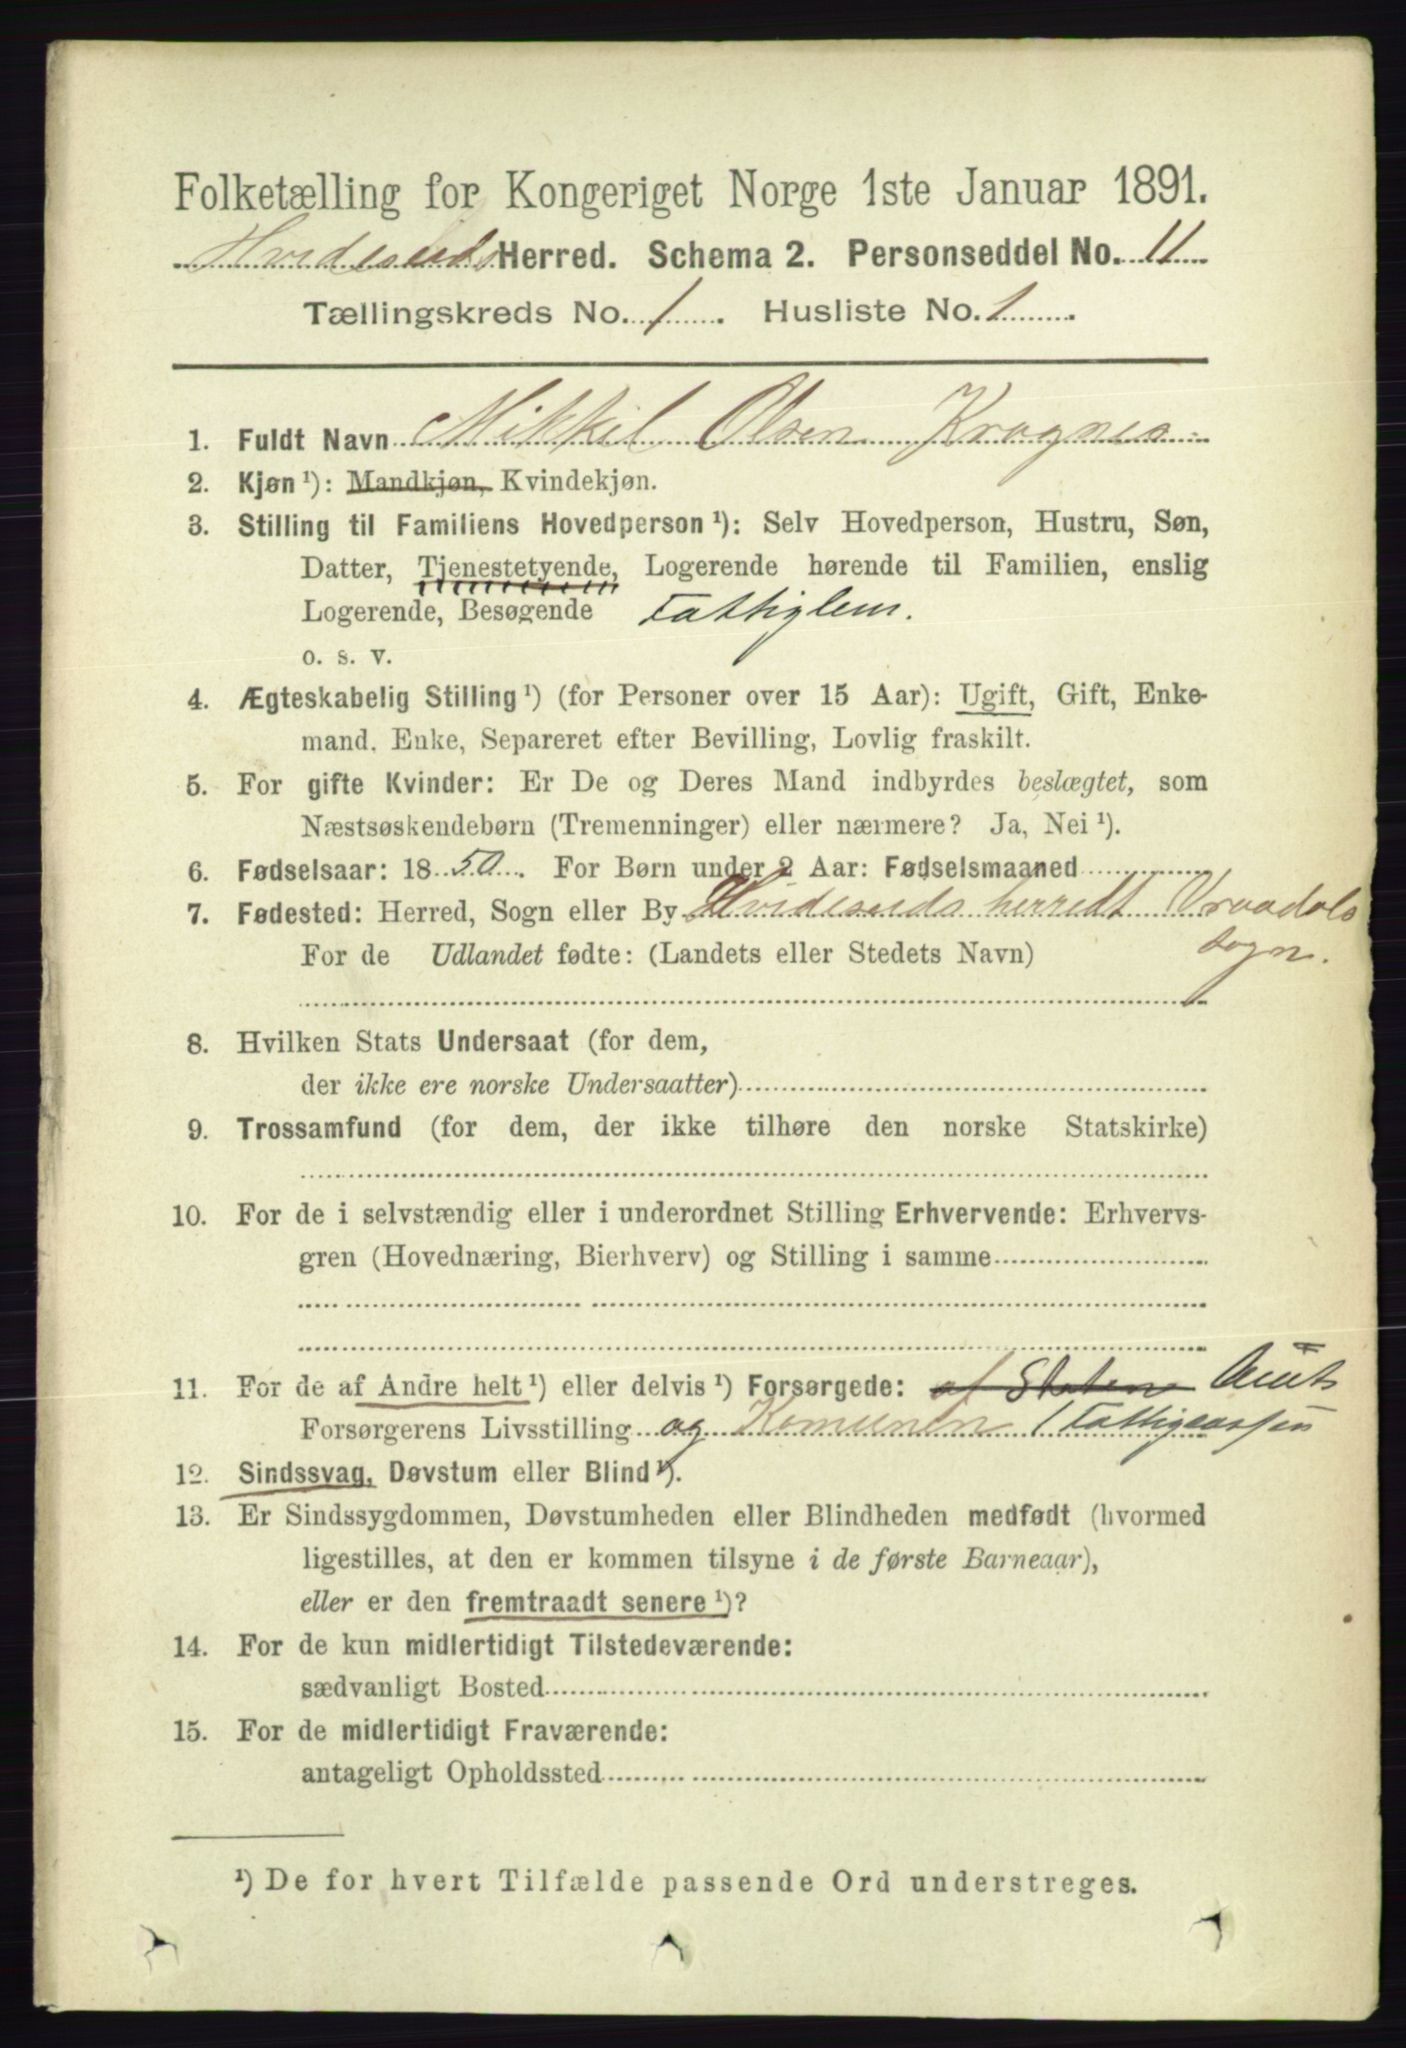 Folketælling for Kongeriget Norge 1ste Januar 1891.
Hvideseids Herred. Schema 2. Personseddel No. 11
Tællingskreds No. 1. Husliste No. 1
1. Fuldt Navn Mikkel Olsen Kragnes
2. Kjøn ¹): Mandkjøn, Kvindekjøn.
3. Stilling til Familiens Hovedperson ¹): Selv Hovedperson, Hustru, Søn,
Datter, Tjenestetyende, Logerende hørende til Familien, enslig
Logerende, Besøgende Fattiglem.
o. s. v.
4. Ægteskabelig Stilling ¹) (for Personer over 15 Aar): Ugift, Gift, Enke-
mand, Enke, Separeret efter Bevilling, Lovlig fraskilt.
5. For gifte Kvinder: Er De og Deres Mand indbyrdes beslægtet, som
Næstsøskendebørn (Tremenninger) eller nærmere? Ja, Nei ¹).
6. Fødselsaar: 1850. For Børn under 2 Aar: Fødselsmaaned
7. Fødested: Herred, Sogn eller By Hvideseids herredt Vraadals
sogn.
For de Udlandet fødte: (Landets eller Stedets Navn)
8. Hvilken Stats Undersaat (for dem,
der ikke ere norske Undersaatter)
9. Trossamfund (for dem, der ikke tilhøre den norske Statskirke)
10. For de i selvstændig eller i underordnet Stilling Erhvervende: Erhvervs-
gren (Hovednæring, Bierhverv) og Stilling i samme
11. For de af Andre helt ¹) eller delvis ¹) Forsørgede: af Staten Amts
Forsørgerens Livsstilling og Komunen / Fattigcassen
12. Sindssvag, Døvstum eller Blind ¹).
13. Er Sindssygdommen, Døvstumheden eller Blindheden medfødt (hvormed
ligestilles, at den er kommen tilsyne i de første Barneaar),
eller er den fremtraadt senere ¹)?
14. For de kun midlertidigt Tilstedeværende:
sædvanligt Bosted
15. For de midlertidigt Fraværende:
antageligt Opholdssted
¹) De for hvert Tilfælde passende Ord understreges.